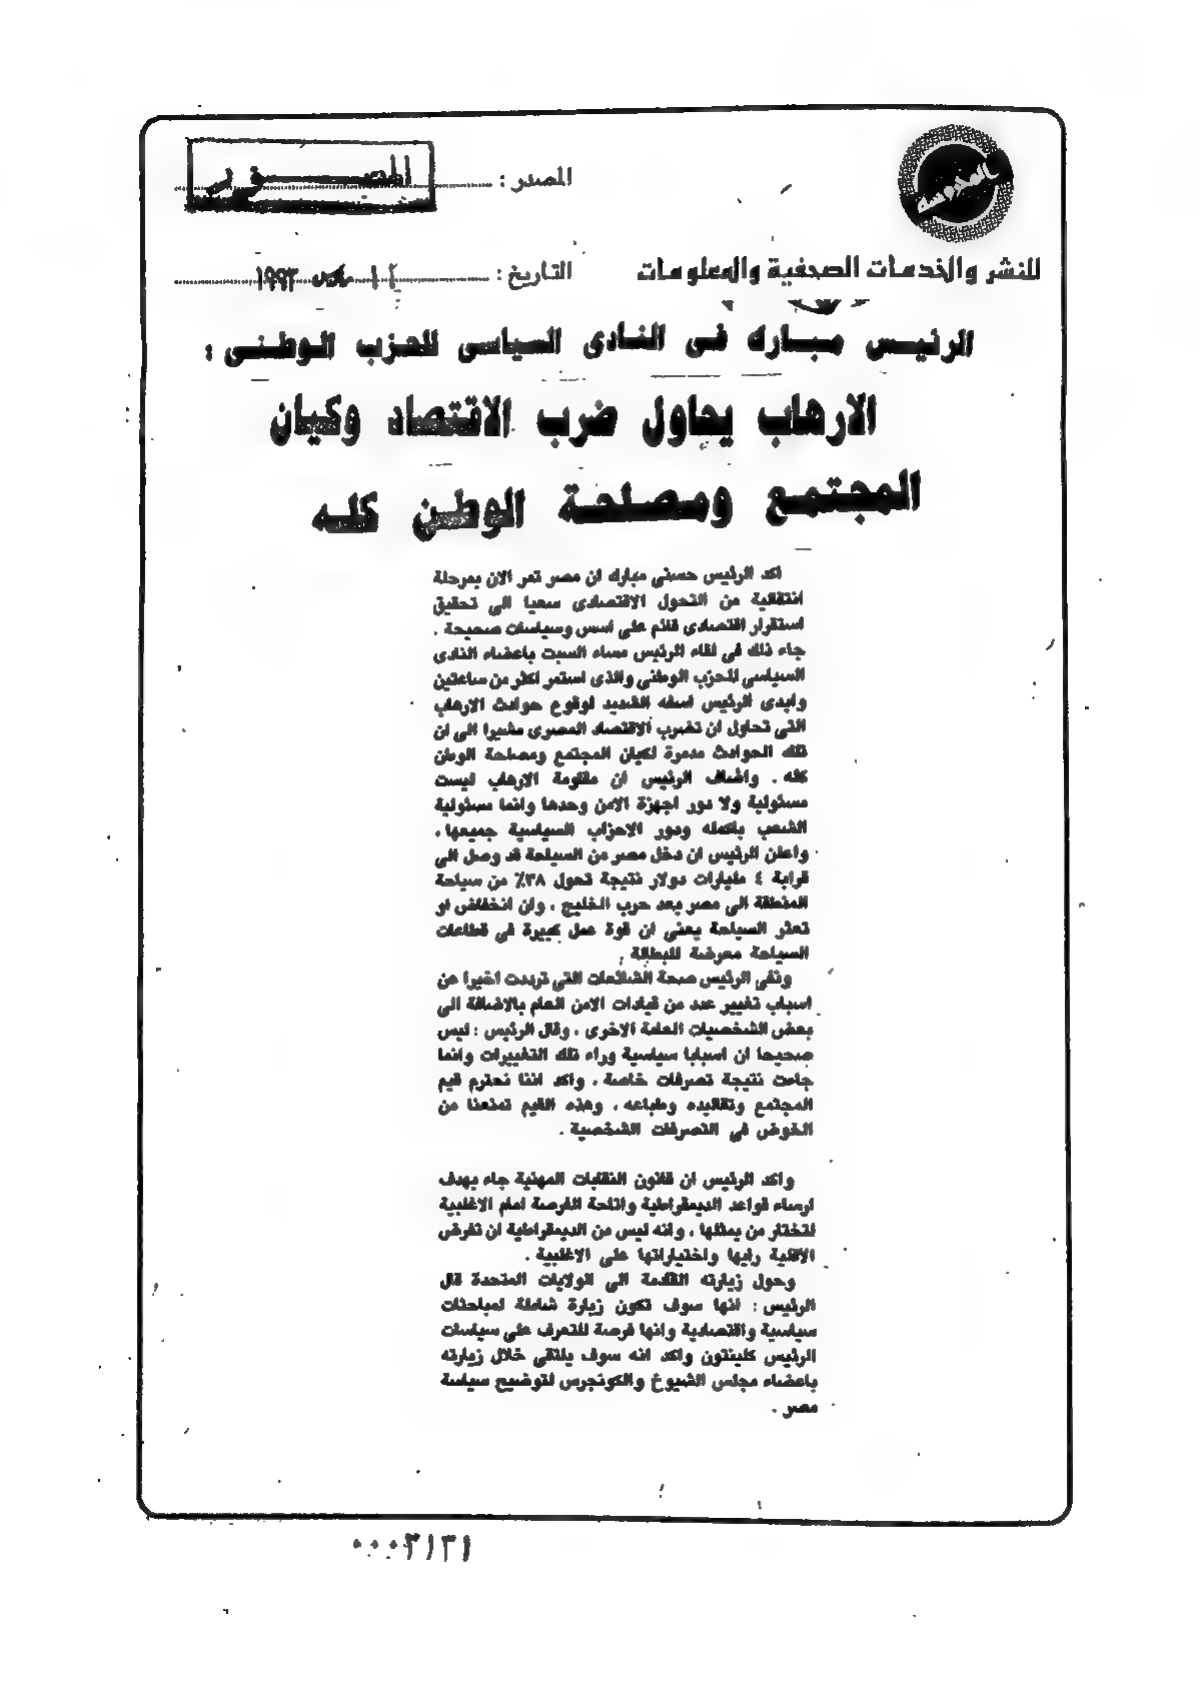 المحروسة
المصدر :
للنشر والخدمات الصحفية والمعلومات
التاريخ : مارس ١٩٩٣
الرئيس مبارك فى النادى السياسى للحزب الوطنى :
الارهاب يحاول ضرب الاقتصاد وكيان
المجتمع ومصلحة الوطن كله
اكد الرئيس حسنى مبارك ان مصر تمر الان بمرحلة
انتقالية من التحول الاقتصادى سعيا الى تحقيق
استقرار اقتصادى قائم على اسس وسياسات صحيحة .
جاء ذلك فى لقاء الرئيس مساء السبت باعضاء النادى
السياسى للحزب الوطنى والذى استمر اكثر من ساعتين
وابدى الرئيس اسفه الشديد لوقوع حوادث الارهاب
التى تحاول ان تضرب الاقتصاد المصرى مشيرا الى ان
تلك الحوادث مدمرة لكيان المجتمع ومصلحة الوطن
كله . واضاف الرئيس ان مقاومة الارهاب ليست
مسئولية ولا دور اجهزة الامن وحدها وانما مسئولية
الشعب باكمله ودور الاحزاب السياسية جميعها .
واعلن الرئيس ان دخل مصر من السياحة قد وصل الى
قرابة ٤ مليارات دولار نتيجة تحول ٣٨٪ من سياحة
المنطقة الى مصر بعد حرب الخليج ، وان انخفاض او
تعثر السياحة يعنى ان قوة عمل كبيرة فى قطاعات
السياحة معرضة للبطالة .
ونفى الرئيس صحة الشائعات التى ترددت اخيرا عن
اسباب تغيير عدد من قيادات الامن العام بالاضافة الى
بعض الشخصيات العامة الاخرى ، وقال الرئيس : ليس
صحيحا ان اسبابا سياسية وراء تلك التغييرات وانما
جاءت نتيجة تصرفات خاصة ، واكد اننا نحترم قيم
المجتمع وتقاليده وطباعه ، وهذه القيم تمنعنا من
الخوض فى التصرفات الشخصية .
واكد الرئيس ان قانون النقابات المهنية جاء بهدف
ارساء قواعد الديمقراطية واتاحة الفرصة امام الاغلبية
لتختار من يمثلها ، وانه ليس من الديمقراطية ان تفرض
الاقلية رايها واختياراتها على الاغلبية .
وحول زيارته القادمة الى الولايات المتحدة قال
الرئيس : انها سوف تكون زيارة شاملة لمباحثات
سياسية واقتصادية وانها فرصة للتعرف على سياسات
الرئيس كلينتون واكد انه سوف يلتقى خلال زيارته
باعضاء مجلس الشيوخ والكونجرس لتوضيح سياسة
مصر .